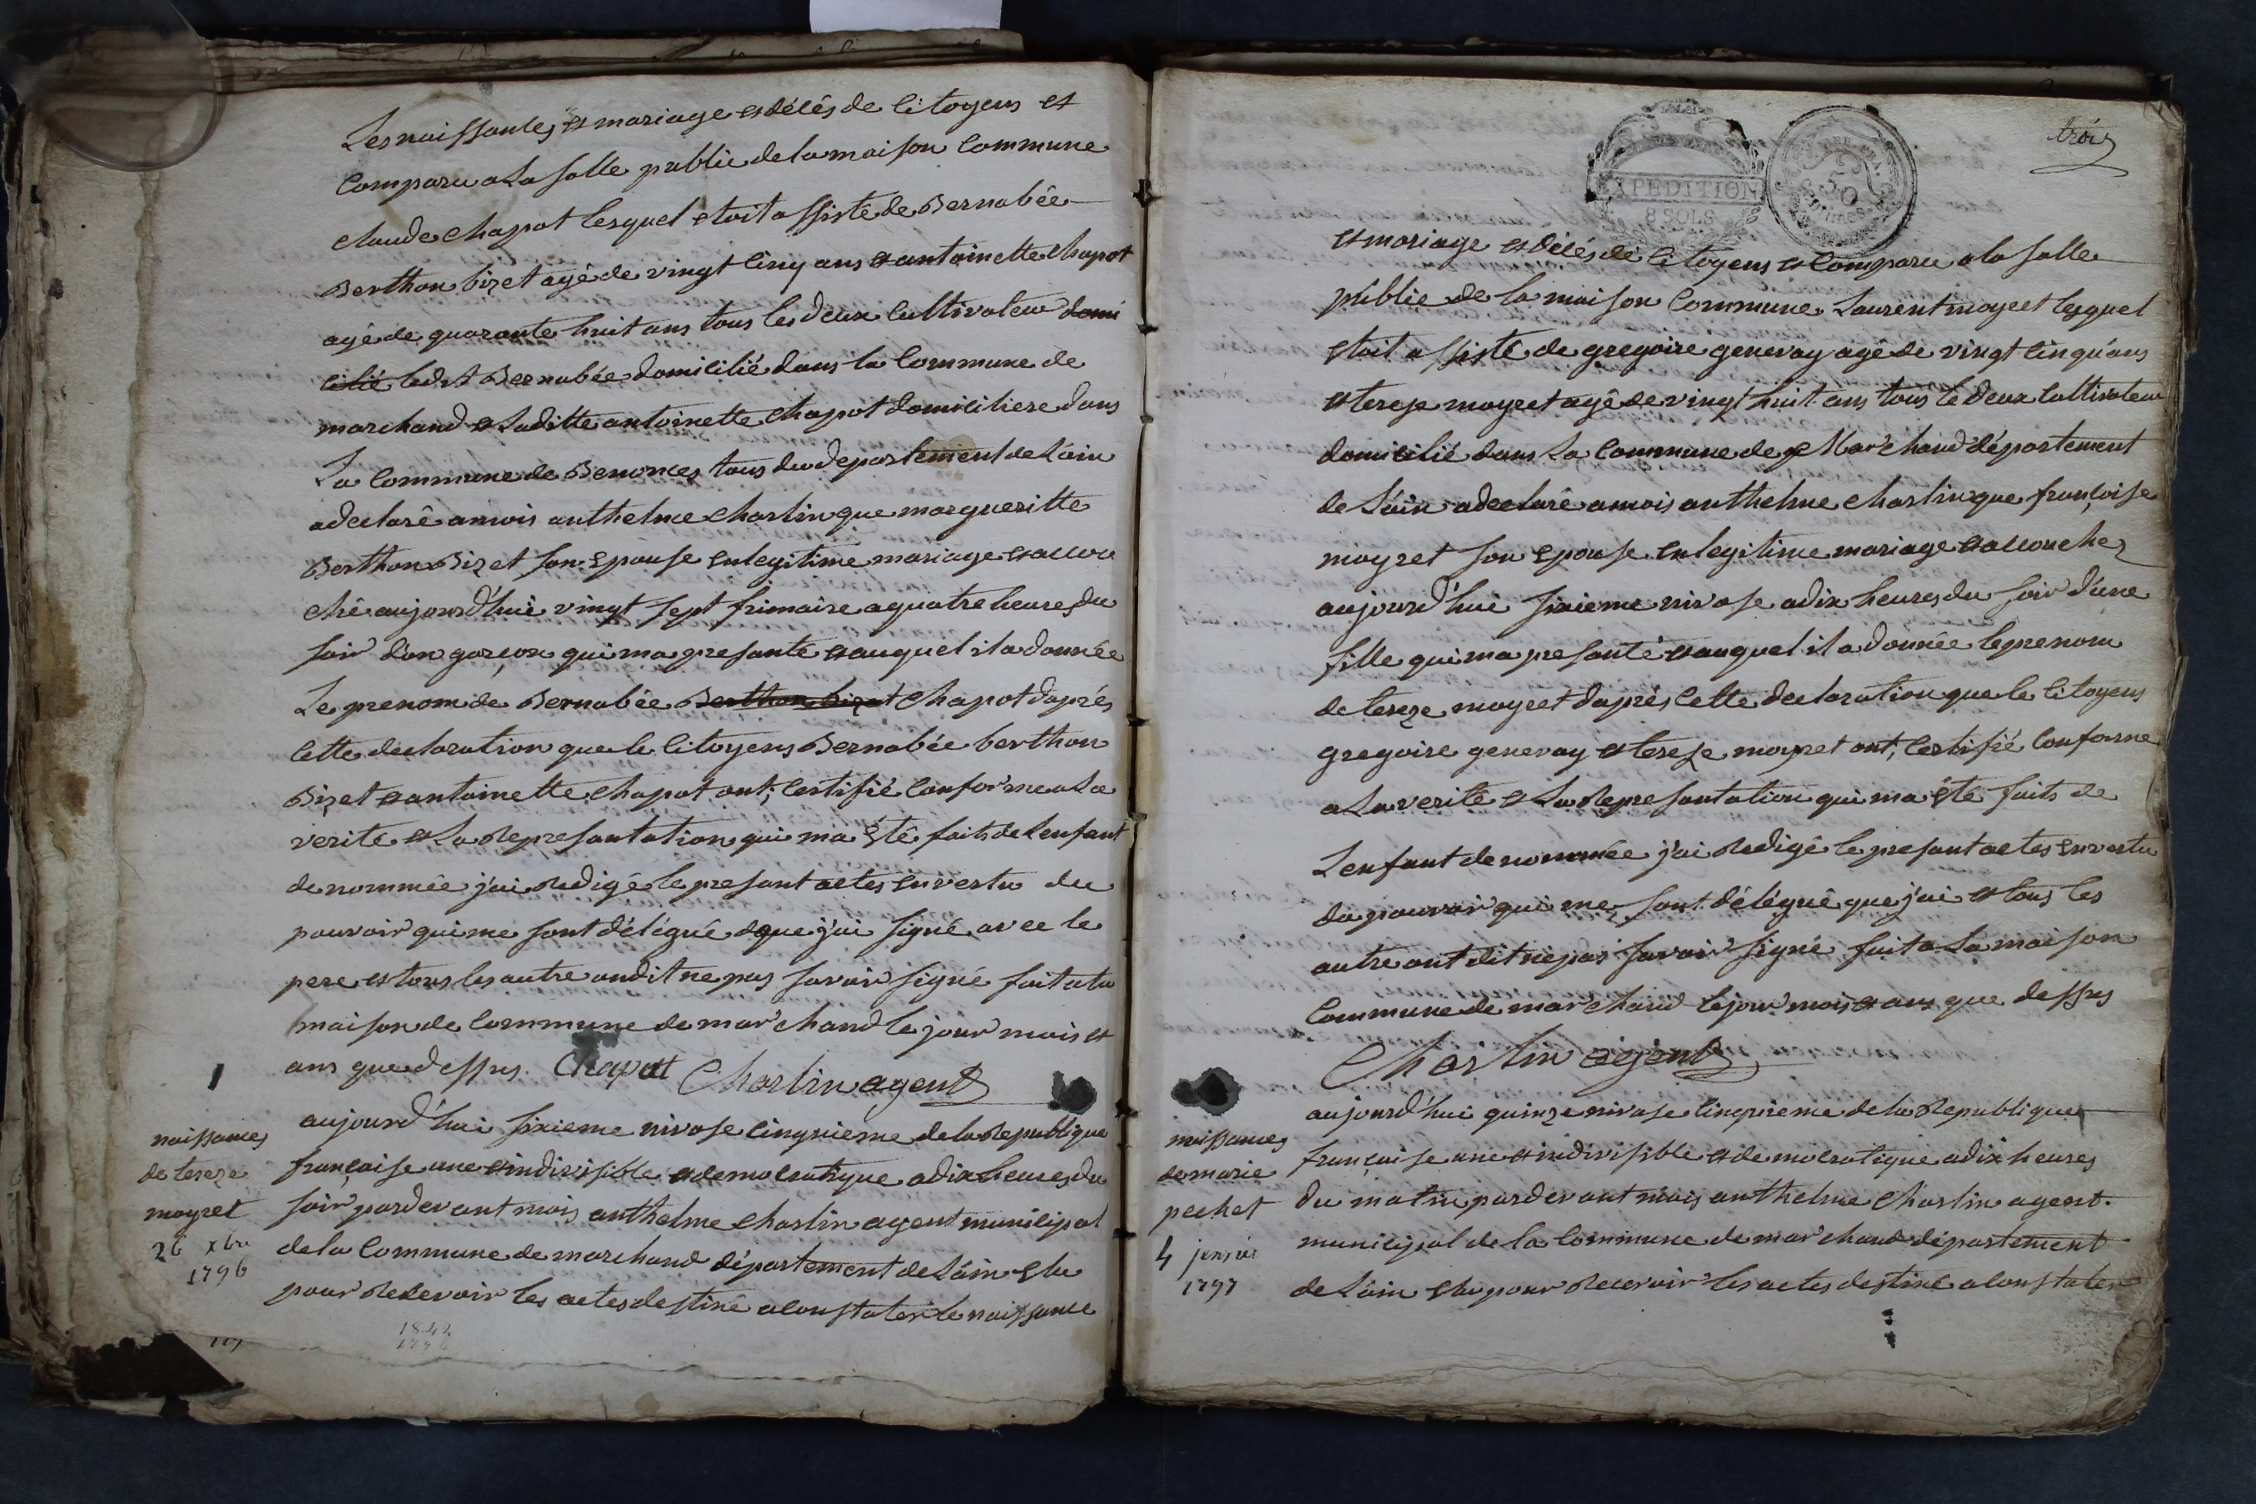 Les naissances et mariage et décés de Citoyens et
Comparu a La salle public de la maison Commune
claude Chapot lesquel etoit assisté de Bernabée
Berthon bizet agé de vingt cinq ans et antoinette Chapot
agé de quarante huit ans tous les deux Cultivateur domi
cilié ledit Bernabée domicilié dans la Commune de
marchand et Laditte antoinette Chapot domiciliere dans
La Commune de Benonces tous du departement de Lain
a declaré a mois anthelme Charlin que margueritte
Berthon Bizet son Epouse en legitime mariage et accou
ché aujourd'hui vingt sept frimaire a quatre heures du
soir d'un garcon qui ma presanté et auquel il a donnée
Le prenom de Bernabée Berthon bizet Chapot daprés
Cette declaration que le Citoyens Bernabée berthon
Bizet et antoinette Chapot ont, Certifié Conforme a La
verité et La Represantation qui ma Eté faits de Lenfant
denommée j'ai Redigé le presant actes en vertu du
pouvoir qui me sont délégué et que j'ai signé avec le
pere et tous les autre ondit ne pas savoir signé fait a la
maison de Commune de marchand le jour mois et
ans que dessus. Chapot Charlin agent
naissances
de tereze
moyret
26 xbre
1796
aujourd'hui sixieme nivose cinquieme de la Republique
française une et indivisible et democratique a dix heures du
soir pardevant mois anthelme Charlin agent municipal
de la Commune de marchand département de Lain Elu
pour Recevoir les actes destiné a Constater le naissance
1844
trois
EXPEDITION
8 SOLS
50
CENTIMES
et mariage et décés de Citoyens et Comparu a la salle
public de la maison Commune Laurent moyret lesquel
etoit assisté de gregoire genevay agé de vingt cinq ans
et tereze moyret agé de vingt huit ans tous le deux Cultivateur
domicilié dans La Commune de Marchand département
de Lain a declaré a mois anthelme Charlin que françoise
moyret son epouse en legitime mariage et accouchez
aujourd'hui sixieme nivose a dix heures du soir d'une
fille qui ma presanté et auquel il a donnée le prenom
de tereze moyret daprés Cette declaration que le Citoyens
gregoire genevay et tereze moyret ont, Certifié Conforme
a La verité et La Represantation qui ma Eté faits de
Lenfant denommée j'ai Redigé le presant actes en vertu
du pouvoir qui me sont délégué que j'ai et tous les
autre ont dit ne pas savoir signé fait a La maison
Commune de marchand le jour mois et ans que dessus
Charlin agent
naissances
de marie
pechet
4 janvier
1797
aujourd'hui quinze nivose cinquieme de la Republique
française une et indivisible et democratique a dix heures
du matin pardevant mois anthelme Charlin agent
municipal de la Commune de marchand département
de Lain Elu pour Recevoir les actes destiné a Constater